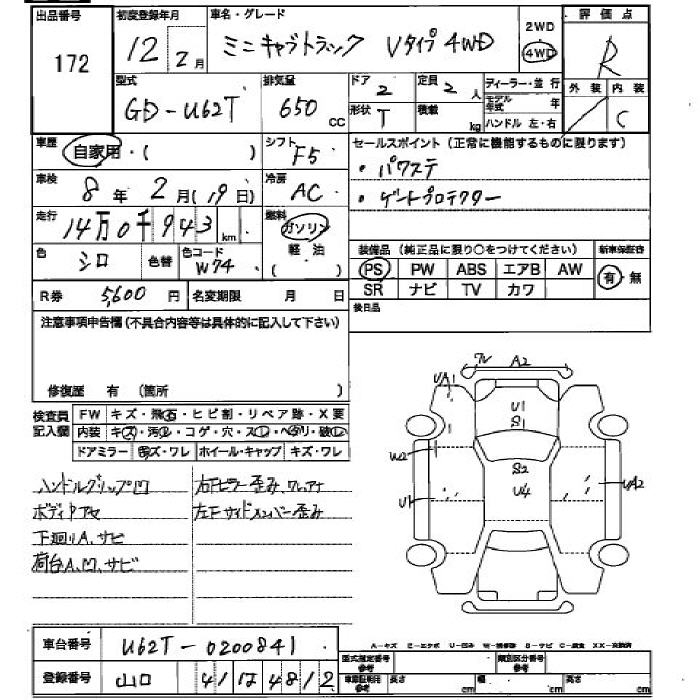 出品番号 172
初度登録年月 12 2月
車名・グレード ミニキャブトラック Vタイプ 4WD
2WD 4WD
評価点 R
外装 内装 C
型式 GD-U62T
排気量 650 cc
ドア 2 定員 2人 ディーラー・並行
形状 T 積載 kg モデル年式 年
ハンドル 左・右
車歴 自家用・( )
シフト F5
セールスポイント(正常に機能するものに限ります)
・パワステ
・ゲートプロテクター
車検 8年 2月(19日)
冷房 AC
走行 14万0千943 km
燃料 ガソリン 軽油 ( )
色 シロ 色替 色コード W74
装備品(純正品に限り○をつけてください) 新車保証書
PS PW ABS エアB AW 有・無
SR ナビ TV カワ
後日品
R券 5,600円 名変期限 月 日
注意事項申告欄(不具合内容等は具体的に記入して下さい)
修復歴 有 (箇所 )
検査員記入欄
FW キズ・飛石・ヒビ割・リペア跡・X要
内装 キズ・汚レ・コゲ・穴・スレ・ヘタリ・破レ
ドアミラー キズ・ワレ ホイール・キャップ キズ・ワレ
ハンドルグリップ凹
ボディPアセ
下廻りA、サビ
荷台A、凹、サビ
右Fピラー歪み、ワレ、アナ
左Fサイドメンバー歪み
A2
UA1
U1
S1
W2
S2
U4
U1
UA2
車台番号 U62T-0200841
登録番号 山口 41 け 4812
A-キズ E-エクボ U-凹み W-補修跡 S-サビ C-腐食 XX-交換済
型式指定番号 参考 類別区分番号 参考
車庫証明 参考 長さ cm 幅 cm 高さ cm